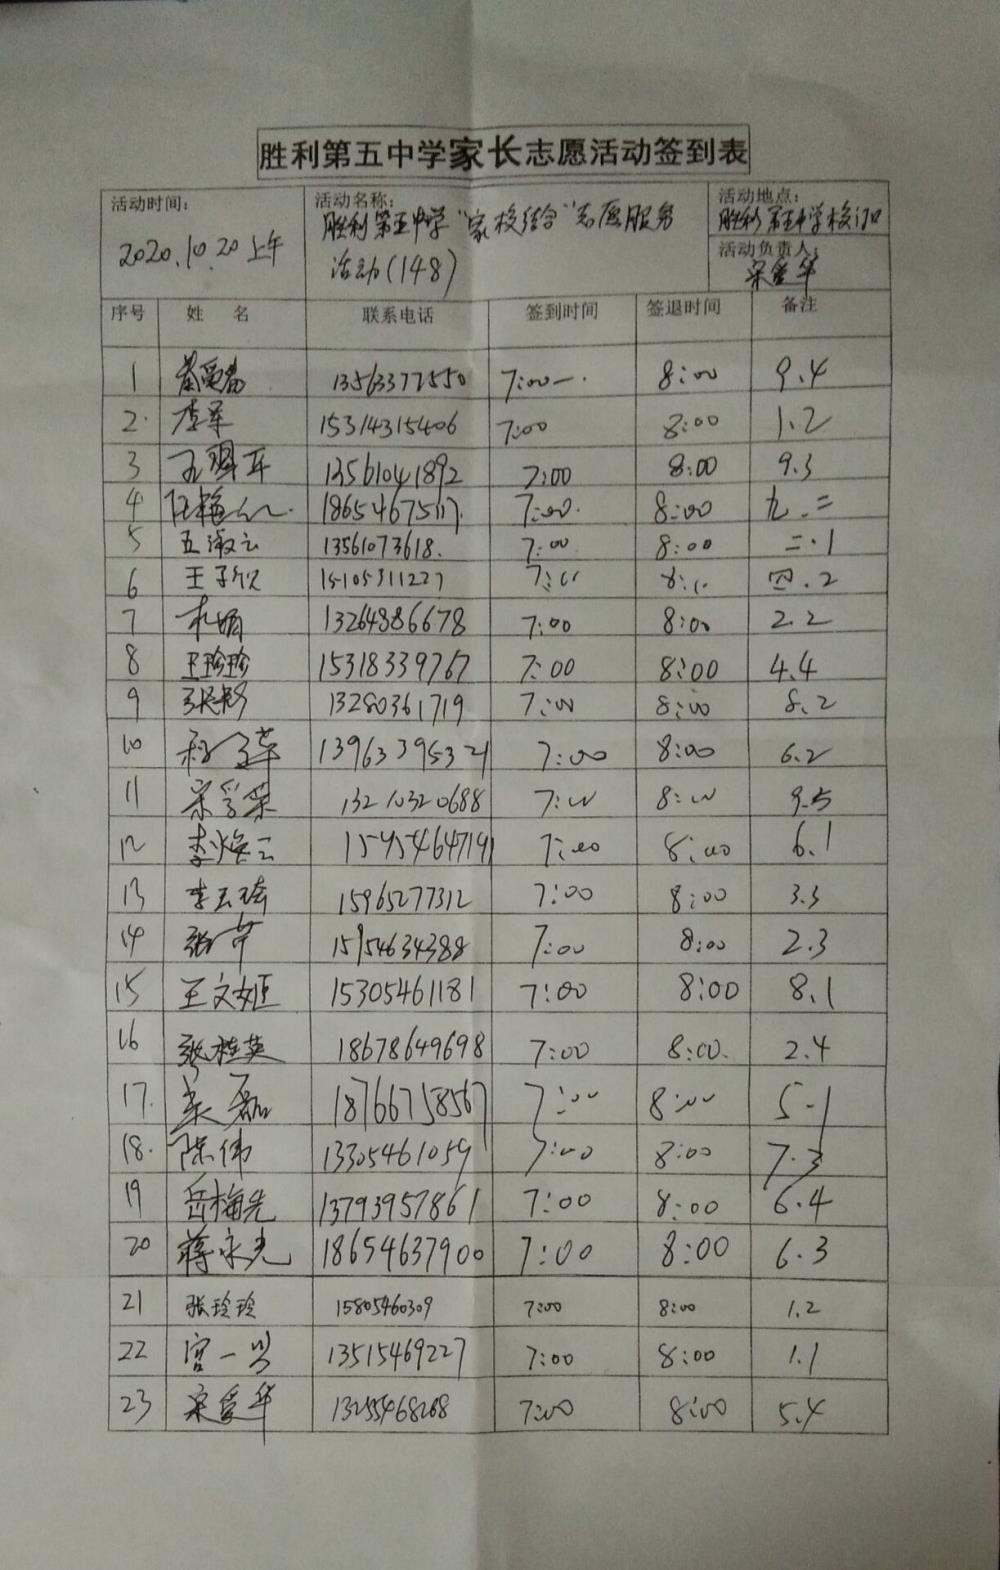 胜利第五中学家长志愿活动签到表
活动时间: 2020.10.20上午
活动名称: 胜利第五中学“家校结合”志愿服务
活动(148)
活动地点: 胜利第五中学校门口
活动负责人: 宋爱华
序号 姓 名 联系电话 签到时间 签退时间 备注
1 13563377550 7:00 8:00 9.4
2. 李军 15314315406 7:00 8:00 1.2
3 13561041892 7:00 8:00 9.3
4 18654675117. 7:00. 8:00 九.二
5 王淑云 13561073618. 7:00 8:00 二.1
6 王子 15105311227 7:00 8:00 四.2
7 13264886678 7:00 8:00 2.2
8 王珍珍 15318339767 7:00 8:00 4.4
9 13280361719 7:00 8:00 8.2
10 13963395321 7:00 8:00 6.2
11 宋学荣 13210320688 7:00 8:00 9.5
12 李焕云 15954647191 7:00 8:00 6.1
13 李云琦 15965277312 7:00 8:00 3.3
14 张芹 15954634388 7:00 8:00 2.3
15 王文姬 15305461181 7:00 8:00 8.1
16 张桂英 18678649698 7:00 8:00. 2.4
17. 磊 18766758567 7:00 8:00 5-1
18. 陈伟 13305461059 7:00 8:00 7.3
19 岳梅先 13793957861 7:00 8:00 6.4
20 蒋永光 18654637900 7:00 8:00 6.3
21 张玲玲 15805460309 7:00 8:00 1.2
22 宫一兴 13515469227 7:00 8:00 1.1
23 宋爱华 13255468268 7:00 8:00 5.4